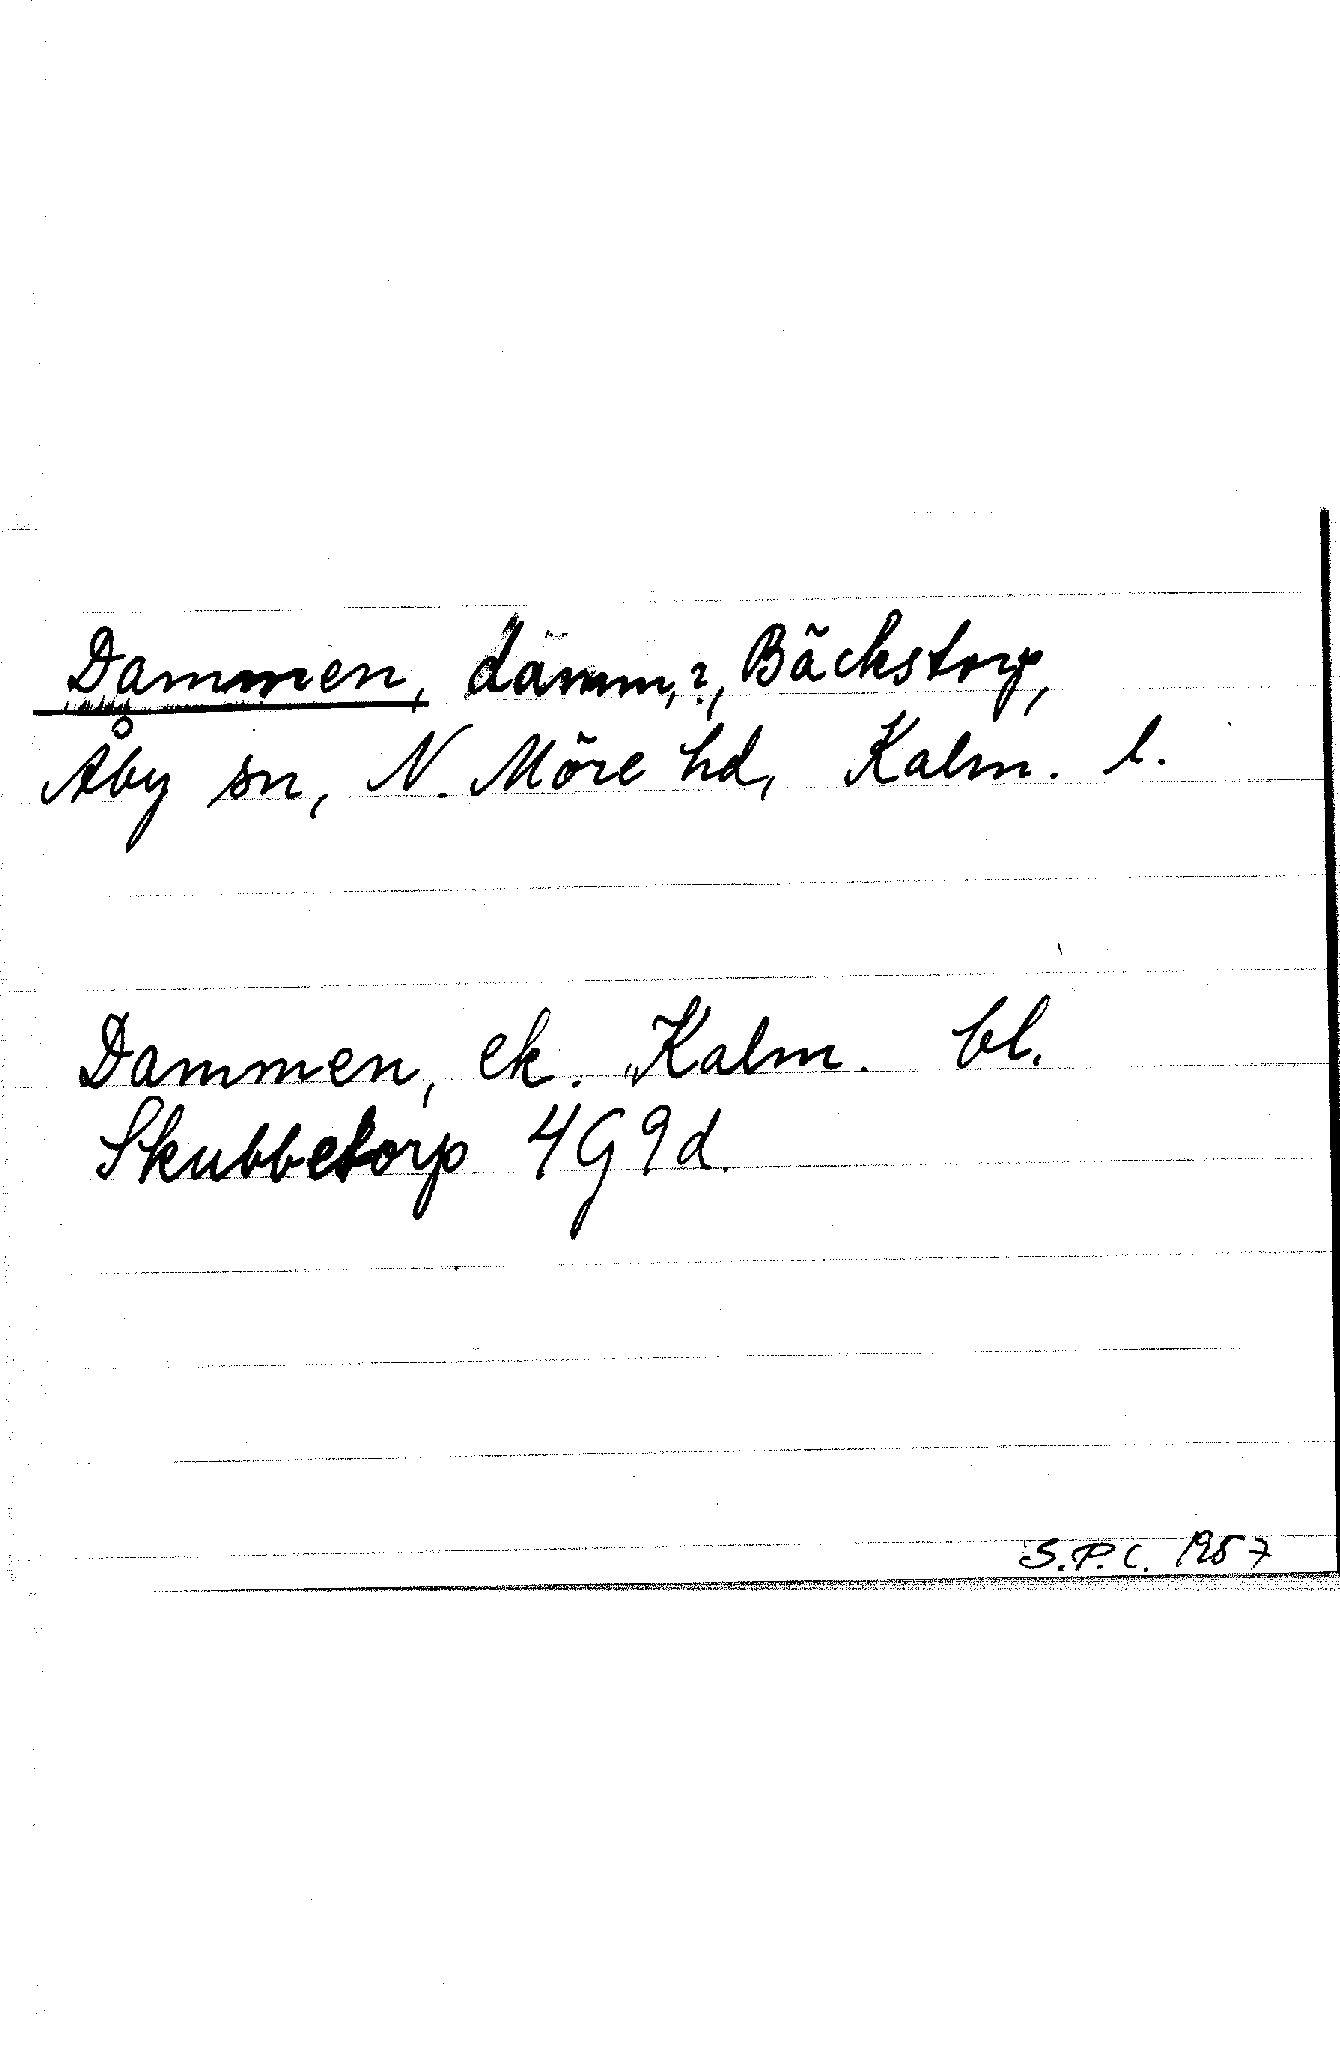 Dammen, damm,?, Bäckstorp,
Åby sn, N. Möre hd, Kalm. l.
Dammen, ek. Kalm. bl.
Skubbetorp 4G9d.
S.P.C. 1957